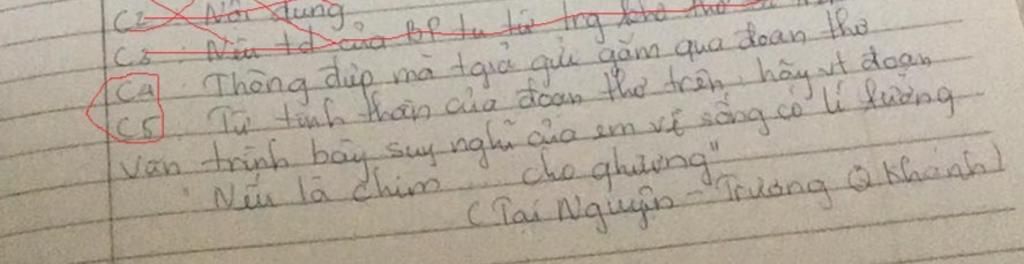 C2 Nội dung
C3: Nêu td của BP tu từ trg khổ thơ
C4: Thông điệp mà tgiả gửi gắm qua đoạn thơ
C5: Từ tinh thần của đoạn thơ trên, hãy vt đoạn
văn trình bày suy nghĩ của em về sống có lí tưởng
"Nếu là chim ... cho
(Tại Nguyện - Trương Q Khánh)